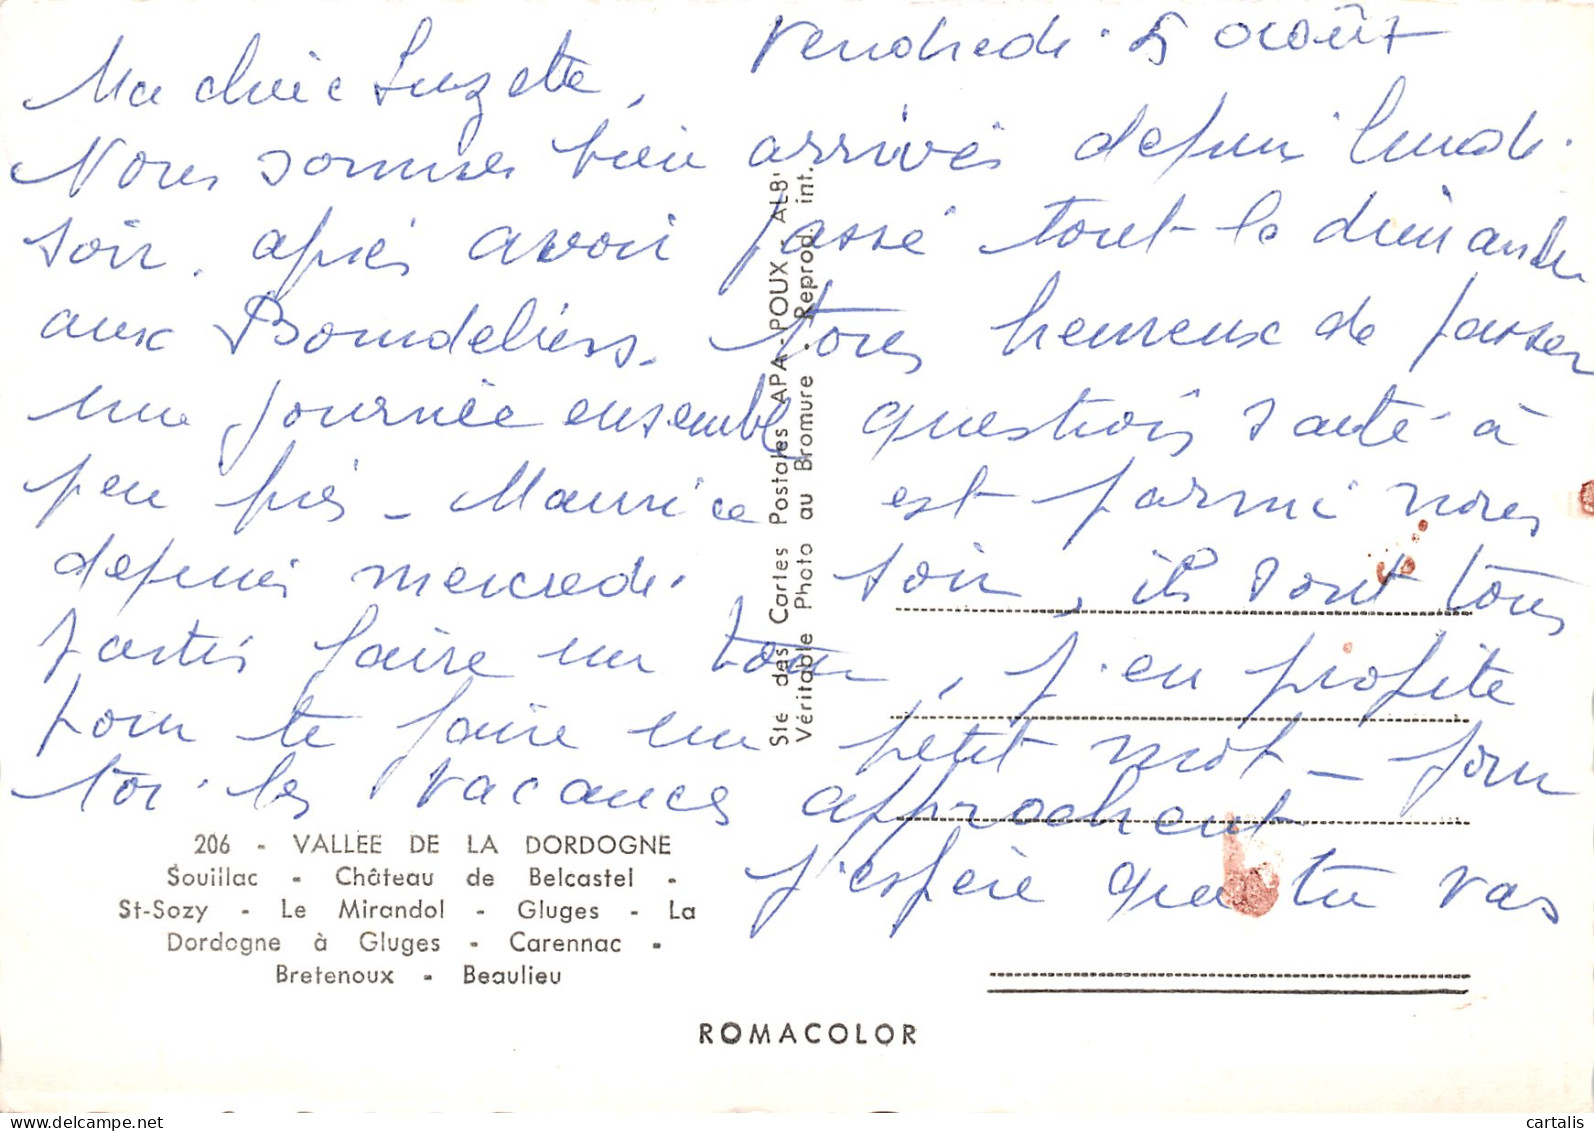 Vendredi 5 août
Ma chère Suzette,
Nous sommes bien arrivés depuis lundi
soir, après avoir passé tout le dimanche
aux Bourdeliers. Tous heureux de passer
une journée ensemble questions santé à
peu près - Maurice est parmi nous
depuis mercredi soir, ils sont tous
partis faire un tour, j'en profite
pour te faire un petit mot - pour
toi les vacances approchent
j'espère que tu vas
206 - VALLEE DE LA DORDOGNE
Souillac - Château de Belcastel -
St-Sozy - Le Mirandol - Gluges - La
Dordogne à Gluges - Carennac -
Bretenoux - Beaulieu
Sté des Cartes Postales APA-POUX - ALBI
Véritable Photo au Bromure • Reprod. int.
ROMACOLOR
cartalis